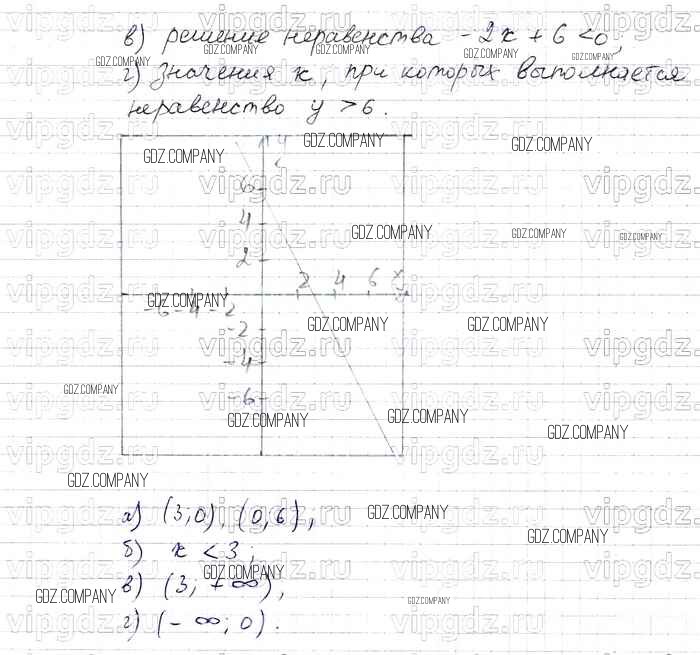 в) решение неравенства -2x + 6 < 0,
г) значения x, при которых выполняется
неравенство y > 6.
y
6
4
2
2 4 6 x
-6 -4 -2
-2
-4
-6
а) (3; 0), (0, 6);
б) x < 3;
в) (3, +∞),
г) (-∞; 0).
GDZ.COMPANY
vipgdz.ru